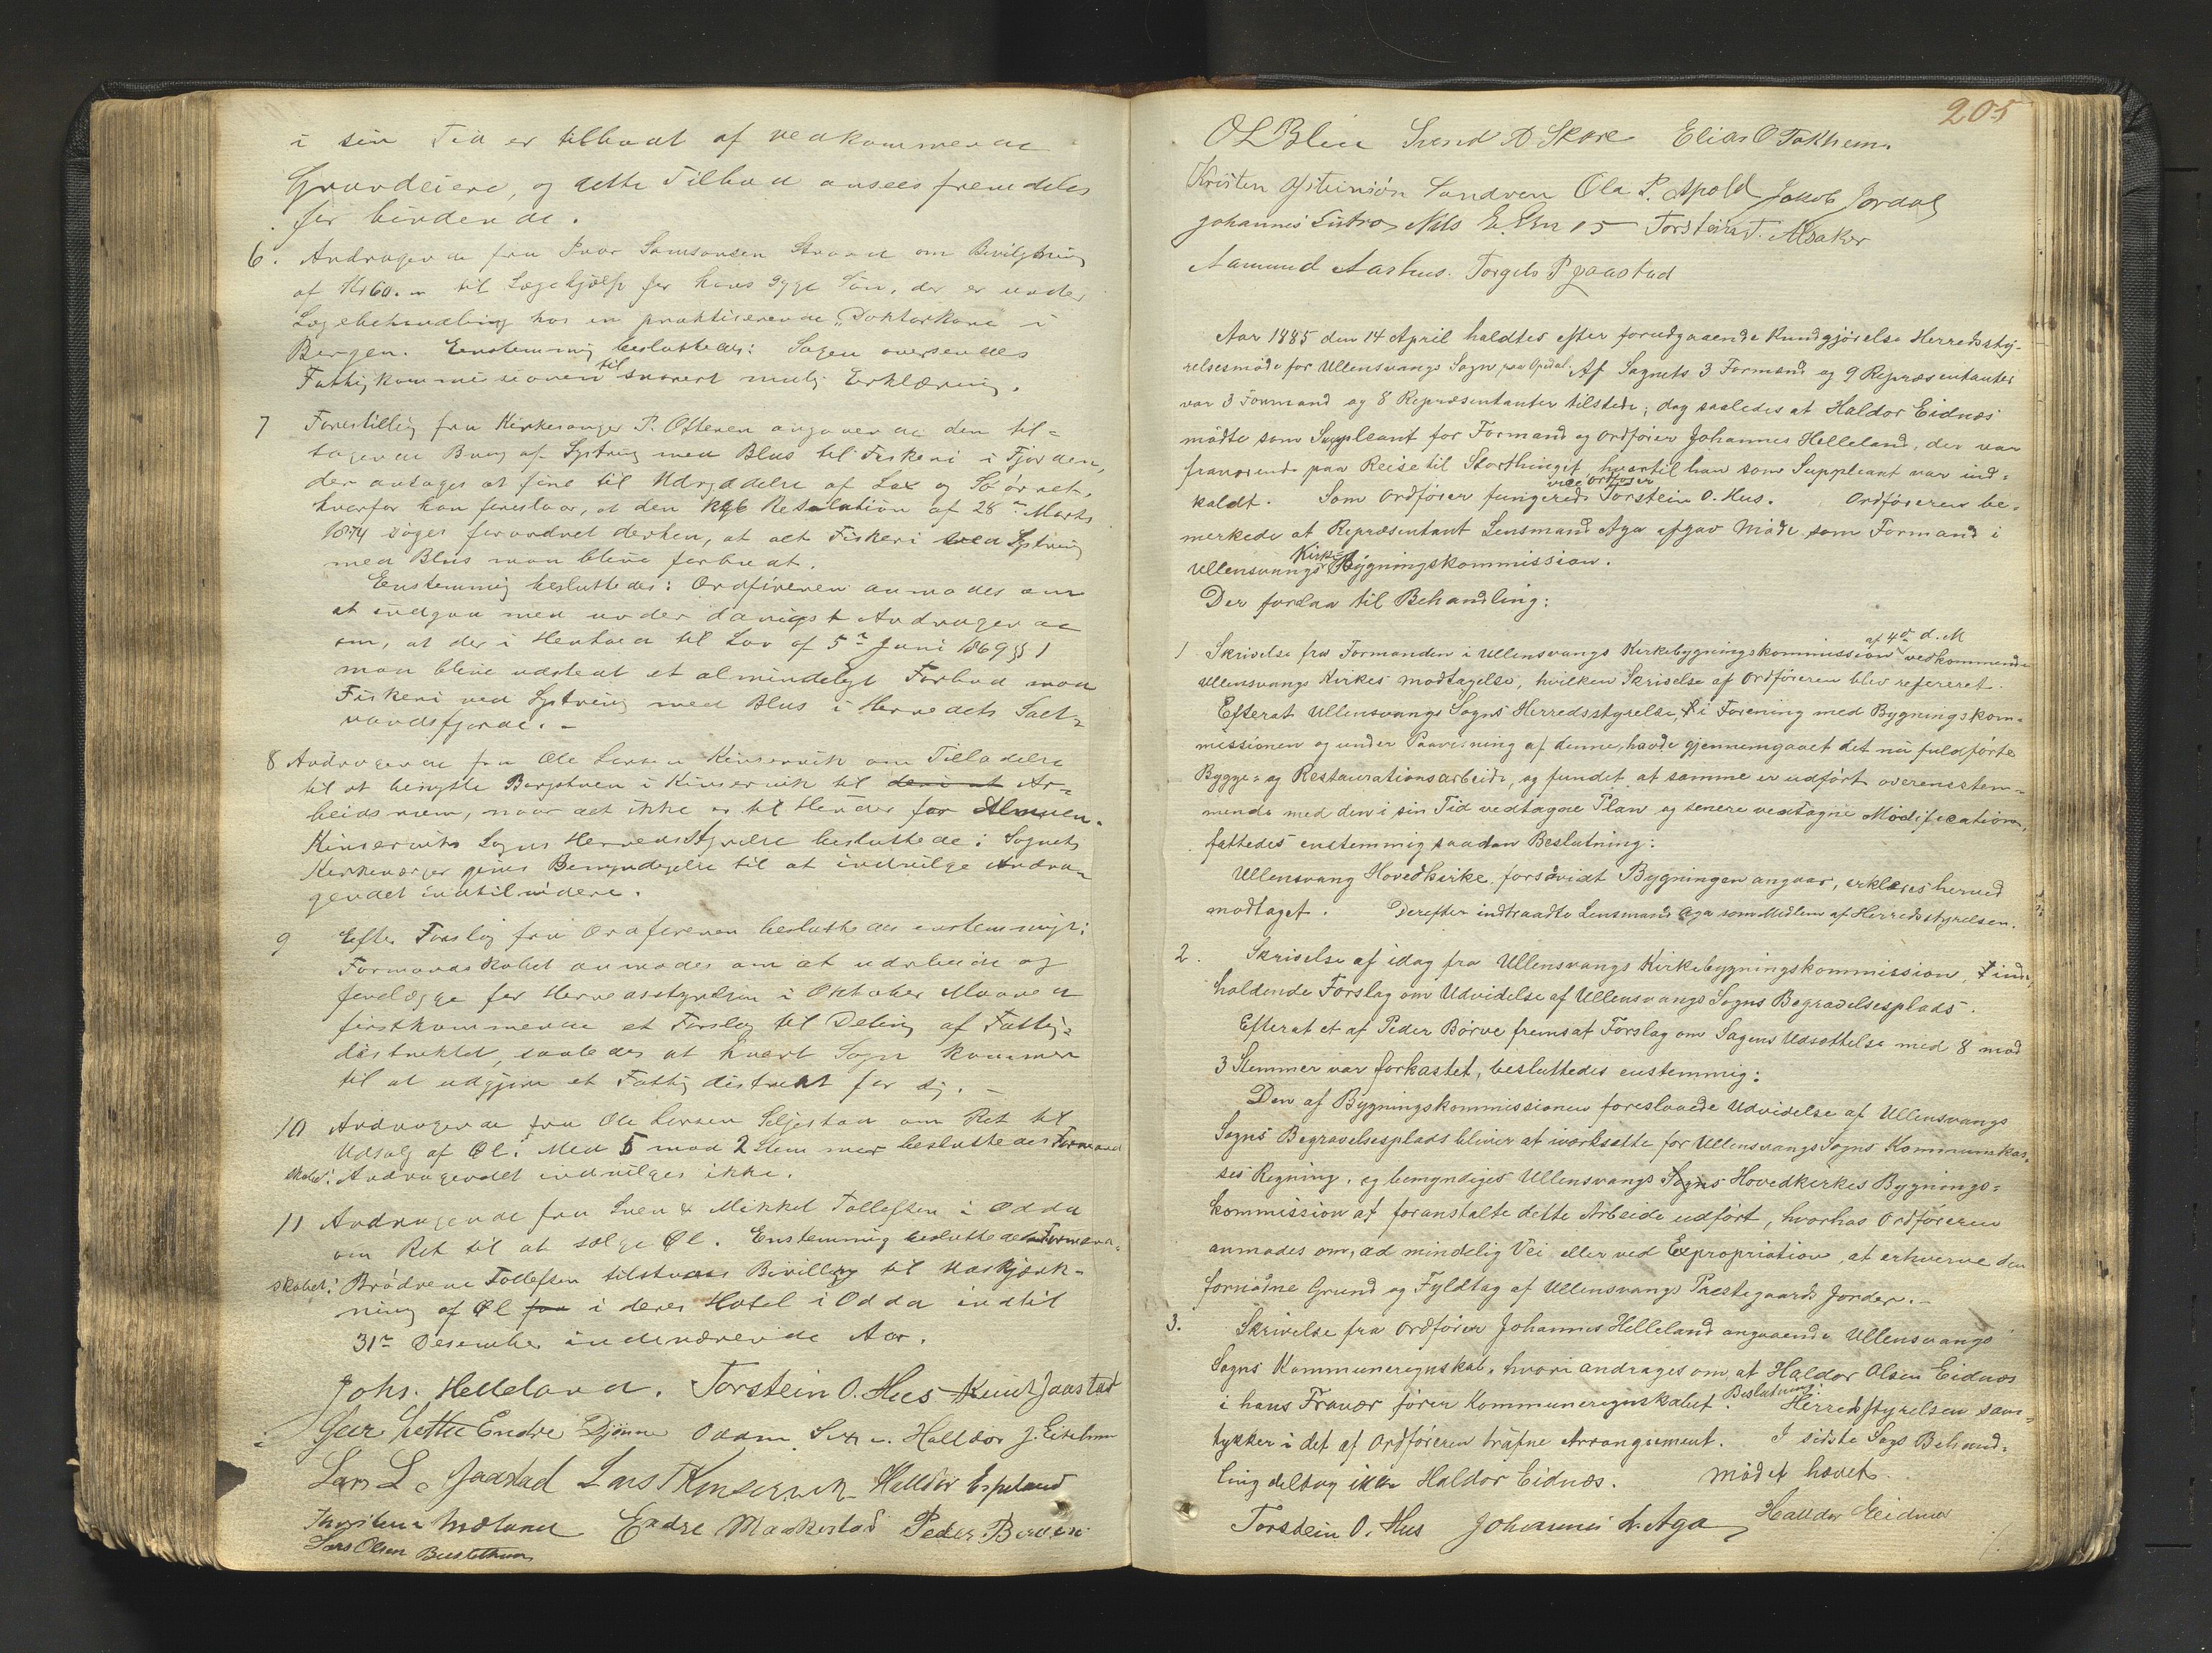 i sin Tid er tilbudt af vedkommende
Grundeiere, og dette Tilbud ansees fremdeles
for bindende.
6. Andragende fra Ivar Samsonsen Straand om Bevilgning
af Kr 60.- til Lægehjælp for hans syge Søn, der er under
Lægebehandling hos en praktiserende "Doktorkone i
Bergen. Enstemmig besluttedes: Sagen oversendes
Fattigkommisionen til snarest mulig Erklæring.
7 Forestilling fra Kirkesanger P. Ottesen angaaende den til-
tagende Brug af Lystring med Blus til Fiskeri i Fjorden,
der antages at tjene til Udryddelse af Lax og Søørret,
hvorfor han foreslaar, at den kgl. Resolution af 28de Marts
1874 søges forandret derhen, at alt Fiskeri ved Lystring
med Blus maa blive forbudt.
Enstemmig besluttedes: Ordføreren anmodes om
at indgaa med underdanigst Andragende
om, at der i Henhold til Lov af 5te Juni 1869 § 1
maa blive udstedt et almindeligt Forbud mod
Fiskeri ved Lystring med Blus i Herredets Salt-
vandsfjorde. -
8 Andragende fra Ole Larsen Kinservik om Tilladelse
til at benytte Borgstuen i Kinservik til deri at Ar-
beidsrum, naar det ikke er til Hinder for Almuen.
Kinserviks Sogns Herredsstyrelse besluttede: Sognets
Kirkeværger gives Bemyndigelse til at indvilge Andra-
gendet indtilvidere.
9 Efter Forslag fra Ordføreren besluttedes enstemmigt:
Formandskabet anmodes om at udarbeide og
forelægge for Herredsstyrelsen i Oktober Maaned
førstkommende et Forslag til Deling af Fattig-
distriktet, saaledes at hvert Sogn kommer
til at udgjøre et Fattigdistrikt for sig. -
10 Andragende fra Ole Larsen Seljestad om Ret til
Udsalg af Øl. Med 5 mod 2 Stemmer besluttedes Formand
skabet: Andragendet indvilges ikke.
11 Andragende fra Sven & Mikkel Tollefsen i Odda
om Ret til at sælge Øl. Enstemmig besluttedes Formand-
skabet: Brødrene Tollefsen tilstaaes Bevilling til Udskjænk-
ning af Øl fra i deres Hotel i Odda indtil
31te Desember indeværende Aar.
Johs. Helleland. Torstein O. Hus Knut Jaastad
Endre Djønne Odden Halldor J. Eitrheim
Lars L. Jaastad Lars T Kinservik Halldor Espeland
Thorstein Endre Maakestad Peder Børve
Lars Olsen Bustetun
205
O L Blie Svend D Skare Elias O Tokheim
Kristen Østeinsøn Sandven Ola P. Apold Jakob Jordal
Johannes Lutro Nils E. Torstein T. Alsaker
Aamund Aarhus. Torgels P Jaastad
Aar 1885 den 14 April holdtes efter forudgaaende Kundgjørelse Herredssty-
relsesmøde for Ullensvangs Sogn paa Opedal. Af Sognets 3 Formænd og 9 Repræsentanter
var 3 Formænd og 8 Repræsentanter tilstede; dog saaledes at Haldor Eidnæs
mødte som Suppleant for Formand og Ordfører Johannes Helleland, der var
fraværende paa Reise til Storthinget, hvortil han som Suppleant var ind-
kaldt. Som Ordfører fungerede viceordfører Torstein O. Hus. Ordføreren be-
merkede at Repræsentant Lensmand Aga afgav Møde som Formand i
Ullensvangs Kirkes Bygningskommission.
Der forelaa til Behandling:
1 Skrivelse fra Formanden i Ullensvangs Kirkebygningskommission af 4de d. M vedkommende
Ullensvangs Kirkes Modtagelse, hvilken Skrivelse af Ordføreren blev refereret.
Efterat Ullensvangs Sogns Herredsstyrelse, i Forening med Bygningskom-
missionen og under Paavisning af denne, havde gjennemgaaet det nu fuldførte
Bygge- og Restaurationsarbeide, og fundet at samme er udført overensstem-
mende med den i sin Tid vedtagne Plan og senere vedtagne Modification,
fattedes enstemmig saadan Beslutning:
Ullensvang Hovedkirke, forsaavidt Bygningen angaar, erklæres herved
modtaget. Derefter indtraadte Lensmand Aga som Medlem af Herredsstyrelsen.
2. Skrivelse af idag fra Ullensvangs Kirkebygningskommission, inde-
holdende Forslag om Udvidelse af Ullensvangs Sogns Begravelsesplads.
Efterat et af Peder Børve fremsat Forslag om Sagens Udsættelse med 8 mod
3 Stemmer var forkastet, besluttedes enstemmig:
Den af Bygningskommissionen foreslaaede Udvidelse af Ullensvangs
Sogns Begravelsesplads bliver at iværksætte for Ullensvangs Sogns Kommunekas-
ses Regning, og bemyndiges Ullensvangs Sogns Hovedkirkes Bygnings-
kommission at foranstalte dette Arbeide udført, hvorhos Ordføreren
anmodes om, ad mindelig Vei eller ved Expropriation, at erhverve den
fornødne Grund og Fyldtag af Ullensvangs Præstegaards Jorder. -
3. Skrivelse fra Ordfører Johannes Helleland angaaende Ullensvangs
Sogns Kommuneregnskab, hvori andrages om, at Haldor Olsen Eidnæs
i hans Fravær fører Kommuneregnskabet. Beslutning: Herredsstyrelsen sam-
tykker i det af Ordføreren trufne Arrangement. I sidste Sags Behand-
ling deltog ikke Haldor Eidnæs. Mødet hævet.
Torstein O. Hus Johannes L. Aga Halldor Eidnæs